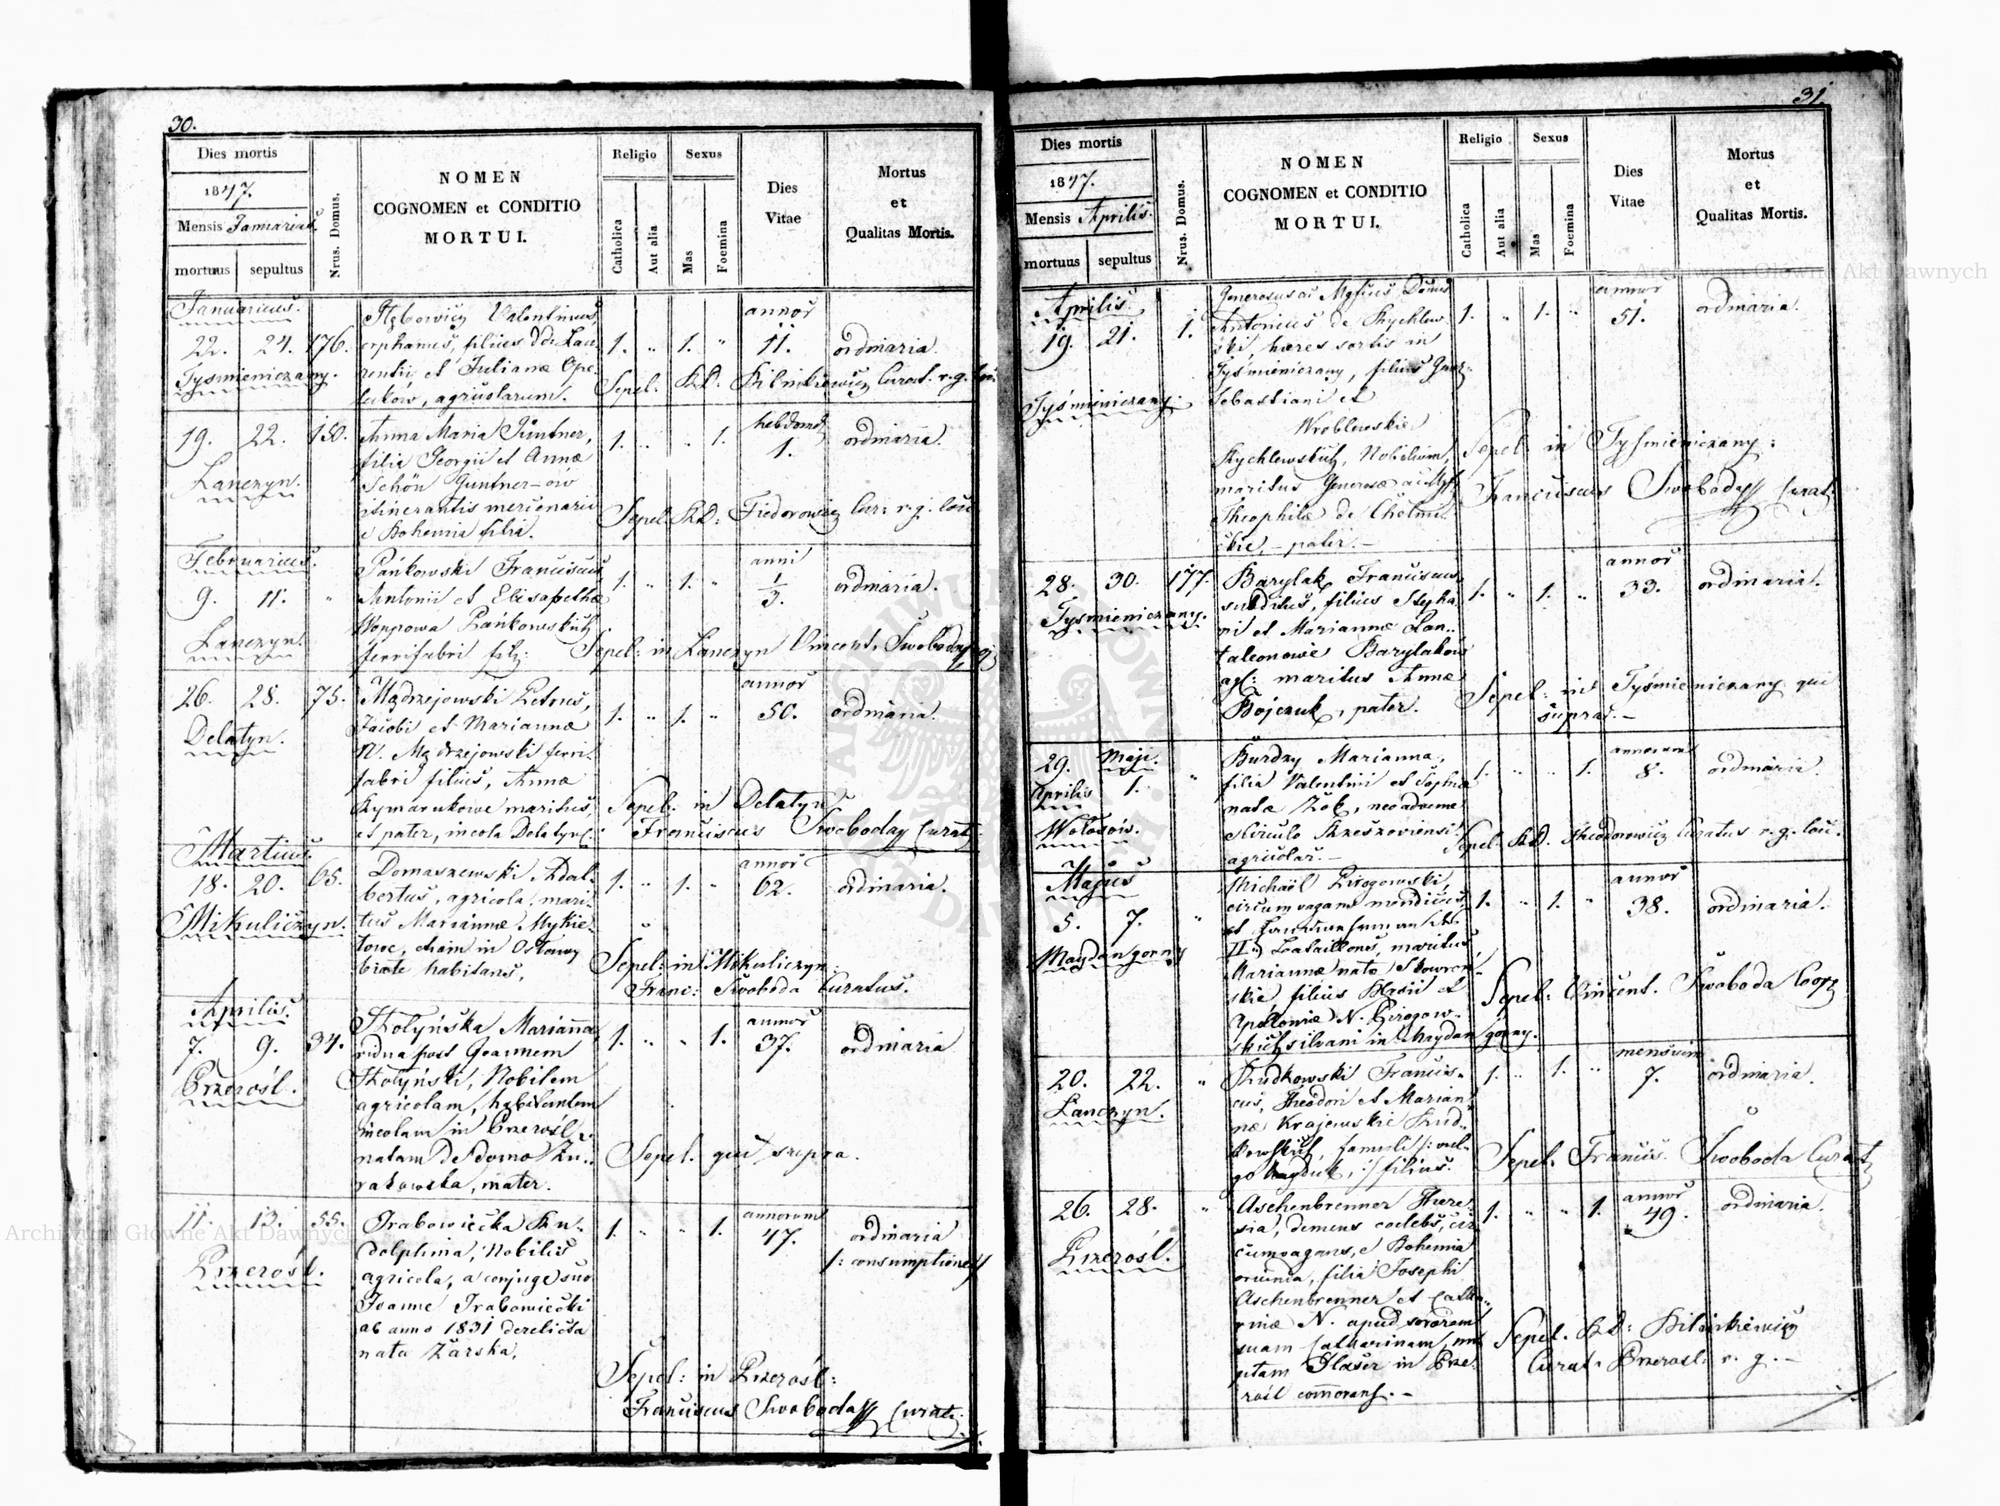 30.
Dies mortis
1847.
Mensis Januarius.
mortuus sepultus
Nrus. Domus.
NOMEN
COGNOMEN et CONDITIO
MORTUI.
Religio
Catholica
Aut alia
Sexus
Mas
Foemina
Dies
Vitae
Mortus
et
Qualitas Mortis.
Januarius.
22. 24. 176.
Tyśmieniczany.
Valentinus,
orphanus, filius Lau
rentii et Julianæ Ope
luków, agricolarum.
1. " 1. "
annor
11.
ordinaria.
Sepel. Curat. r. g. loci.
19. 22. 150.
Lanczyn.
Anna Maria Güntner,
filia Georgii et Annæ
Schön Güntner
itinerantis mercionarii
e Bohemia filia.
1. " " 1.
hebdomd
1.
ordinaria.
Sepel. Fiedorowicz Cur: r. g. loci
Februarius.
9. 11. "
Lanczyn.
Pańkowski Franciscus
Antonii et Elisabethæ
Pańkowskich
ferrifabri filg:
1. " 1. "
anni
1/3.
ordinaria.
Sepel: in Lanczyn Vincent. Swoboda
26. 28. 75.
Delatyn.
Mądrzejowski Petrus,
Jacobi et Mariannæ
N. Mądrzejowski ferri
fabri filius, Annæ
maritus,
et pater, incola Delatyn:
1. " 1. "
annor
50.
ordinaria.
Sepel: in Delatyn
Franciscus Swoboda Curat.
Martius.
18. 20. 65.
Mikuliczyn.
Domaszewski Adal
bertus, agricola, mari
tus Mariannæ Mykie
towe, etiam in
habitans,
1. " 1. "
annor
62.
ordinaria.
Sepel: in Mikuliczyn:
Franc: Swoboda Curatus.
Aprilis.
7. 9. 34.
Przerośl.
Marianna
vidua post Joannem
Nobilem
agricolam, habitantem
incolam in Przerośl,
natam de domo Żu
rakowska, mater.
1. " " 1.
annor
37.
ordinaria
Sepel. qui supra.
11. 13. 55.
Przerośl.
Grabowiecka Ru
dolphina, Nobilis
agricola, a conjuge suo
Joanne Grabowiecki
ab anno 1831 derelicta
nata Żarska,
1. " " 1.
annorum
47.
ordinaria
/: consumptione //
Sepel: in Przerośl:
Franciscus Swoboda Curat.
31.
Dies mortis
1847.
Mensis Aprilis.
mortuus sepultus
Nrus. Domus.
NOMEN
COGNOMEN et CONDITIO
MORTUI.
Religio
Catholica
Aut alia
Sexus
Mas
Foemina
Dies
Vitae
Mortus
et
Qualitas Mortis.
Aprilis.
19. 21. 1.
Tyśmieniczany.
Generosus ac Mgficus Domus
Antonius de Rychlew
ski, hæres sortis in
Tyśmieniczany, filius
Sebastiani et
Wroblewskie
Rychlewskich, Nobilium,
maritus Generosæ ac
Theophilæ de
skie, - pater. -
1. " 1. "
annor
51.
ordinaria.
Sepel in Tyśmieniczany:
Franciscus Swoboda Curat.
28. 30. 177.
Tyśmieniczany.
Barylak Franciscus
subditus, filius Stepha
ni et Mariannæ Pan
taleonowie Barylaków
agr: maritus Annæ
Bojczuk, pater.
1. " 1. "
annor
33.
ordinaria.
Sepel: in Tyśmieniczany qui
supra. -
29. Maji.
Aprilis 1. "
Wołosów.
Burdzy Marianna,
filia Valentini et Sophiæ
natæ Żok, neoadvenæ
Circulo Rzeszoviensi
agricolar. -
1. " " 1.
annorum
8.
ordinaria.
Sepel. Theodorowicz Curatus r. g. loci.
Majus
5. 7. "
Maydan gorny
Michaël Pirogowski,
circumvagans mendicus,
et
Batailleons, maritus
Mariannæ nato Skowroń
skie, filius et
Apoloniæ N. Pirogow
skich silvani in Maydan gorny.
1. " 1. "
annor
38.
ordinaria.
Sepel: Vincent. Swoboda Coop.
20. 22. "
Lanczyn.
Rudkowski Francis
cus, Theodori et Marian
næ Krajewskie Rud
kowskich, famuli /: vul
go Hayduk, :/ filius.
1. " 1. "
mensium
7.
ordinaria.
Sepel. Francis. Swoboda Curat.
26. 28. "
Przerośl.
Aschenbrenner There
sia, demens coelebs, cir
cumvagans, e Bohemia
oriunda, filia Josephi
Aschenbrenner et Catha
rinæ N. apud sororem
suam Catharinam, nu
ptam Glaser in Prze
rośl commorans. -
1. " " 1.
annor
49.
ordinaria.
Sepel.
Curat. Przerośl. r. g. -
Archiwum Główne Akt Dawnych
Archiwum Główne Akt Dawnych